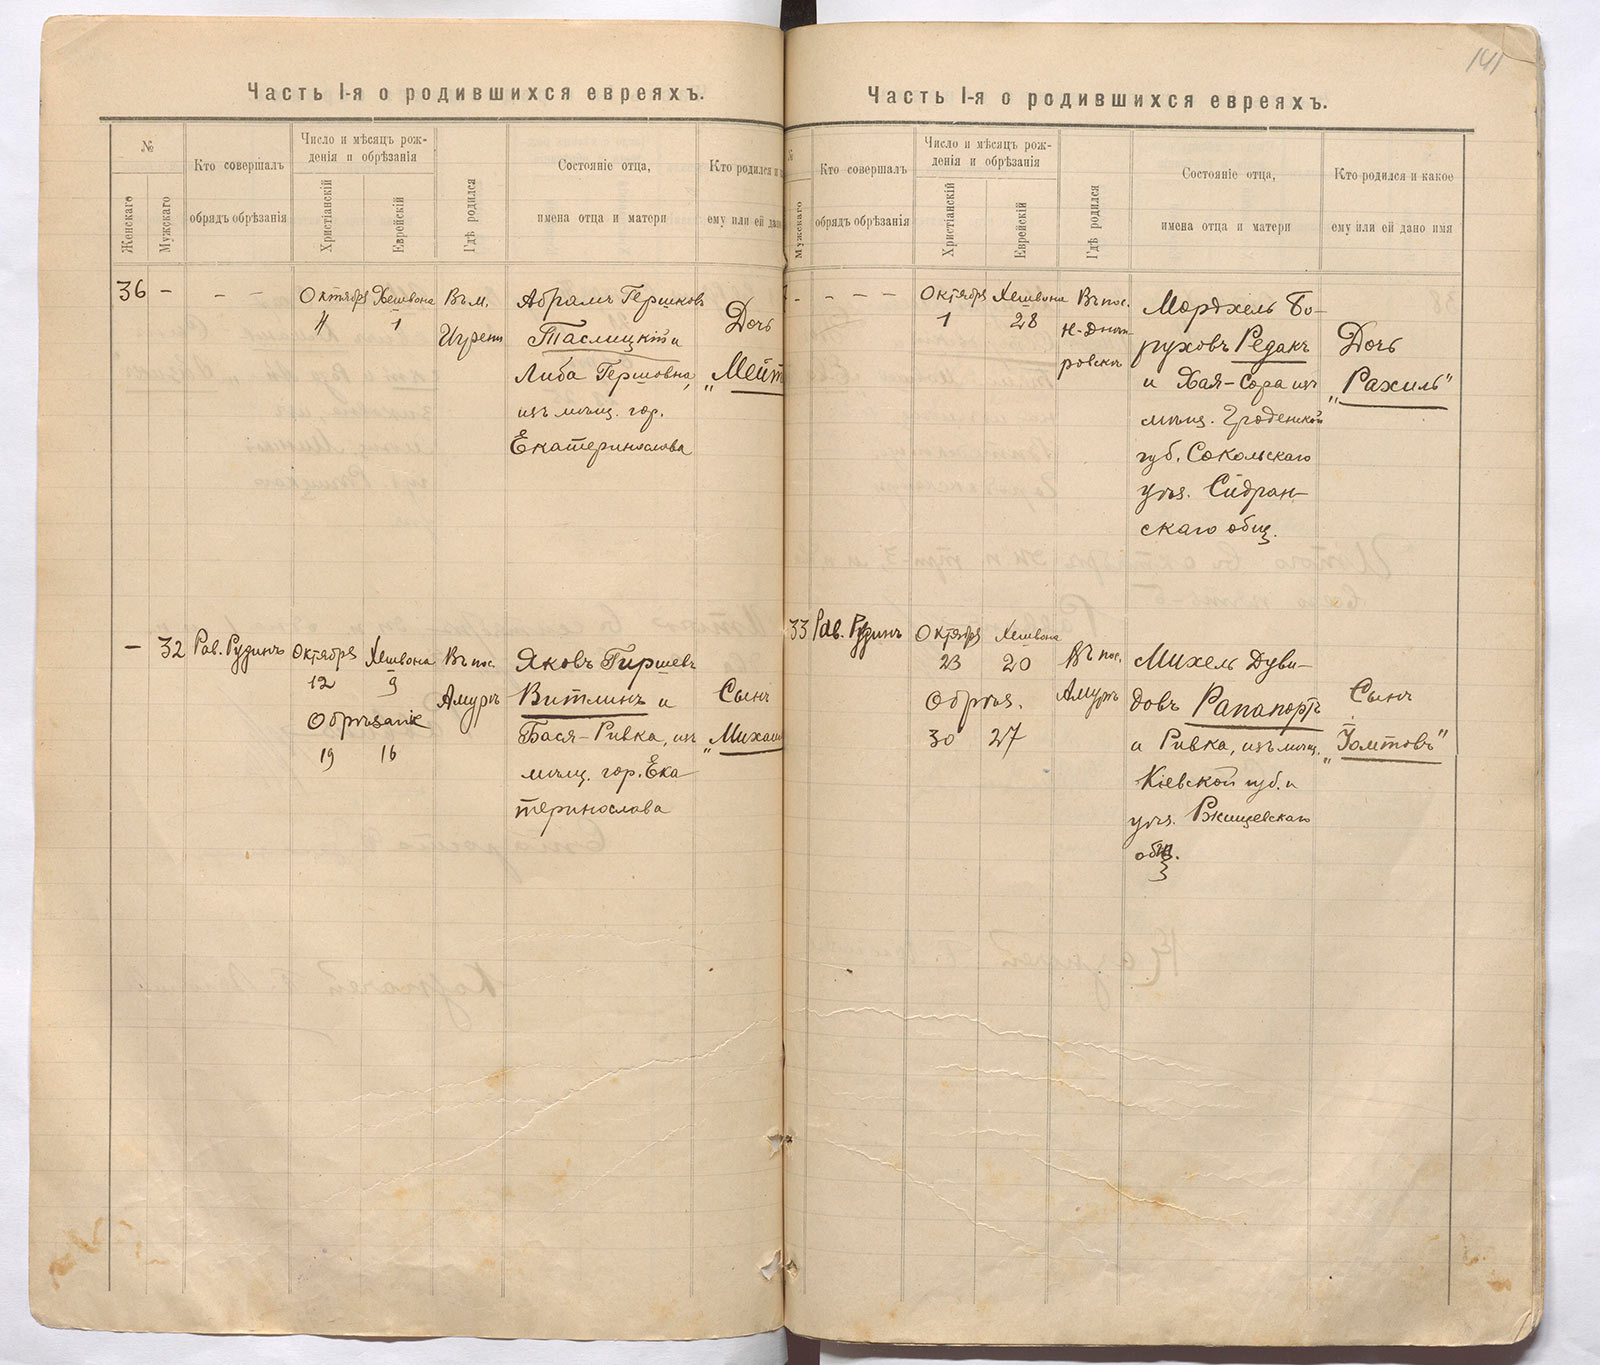 Часть I-я о родившихся евреяхъ.
№
Женскаго
Мужскаго
Кто совершалъ
обрядъ обрѣзанія
Число и мѣсяцъ рож-
денія и обрѣзанія
Христіанскій
Еврейскій
Гдѣ родился
Состояніе отца,
имена отца и матери
Кто родился и
ему или ей дано
36 - - - -
Октября Хешвона
4 1
Въ м.
Игрени
Абрамъ Гершковъ
Таслицкій и
Либа Гершовна,
изъ мѣщ. гор.
Екатеринослава
Дочь
"Мейт
- 32 Рав. Рудинъ
Октября Хешвона
12 9
Обрѣзаніе
19 16
Въ пос.
Амуръ
Яковъ Гиршевъ
Витлинъ и
Бася-Ривка, изъ
мѣщ. гор. Ека-
теринослава
Сынъ
"Михаи
141
Часть I-я о родившихся евреяхъ.
№
Мужскаго
Кто совершалъ
обрядъ обрѣзанія
Число и мѣсяцъ рож-
денія и обрѣзанія
Христіанскій
Еврейскій
Гдѣ родился
Состояніе отца,
имена отца и матери
Кто родился и какое
ему или ей дано имя
- - - -
Октября Хешвона
1 28
Въ пос.
Н-Днѣп-
ровскъ
Мордхель Бо-
руховъ Редакъ
и Хая-Сора изъ
мѣщ. Гродненской
губ. Сокольскаго
уѣз. Сидран-
скаго общ.
Дочь
"Рахиль"
33 Рав. Рудинъ
Октября Хешвона
23 20
Обрѣз.
30 27
Въ пос.
Амуръ
Михель Дуви-
довъ Рапапортъ
и Ривка, изъ мѣщ.
Кіевской губ. и
уѣз. Ржищевскаго
общ.
Сынъ
"Іомтовъ"